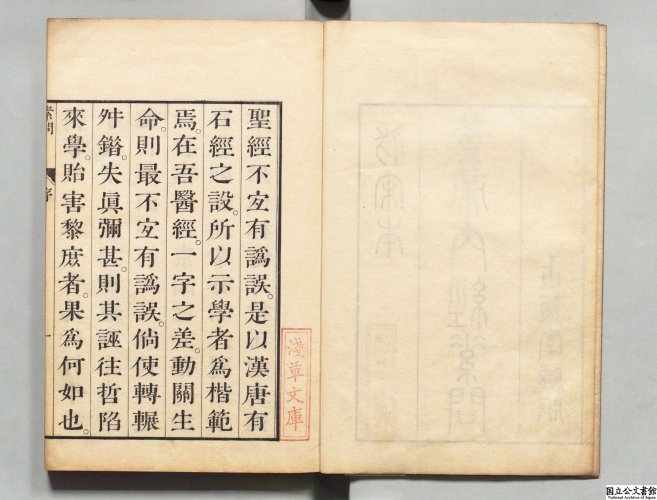 聖經不宐有譌誤。是以漢唐有
石經之設。所以示學者爲楷範
焉。在吾醫經。一字之差。動關生
命。則最不宐有譌誤。倘使轉輾
舛鎝失眞彌甚。則其誣往哲陷
來學。貽害黎庶者。果爲何如也。
素問
序
一
淺草文庫
国立公文書館
National Archives of Japan